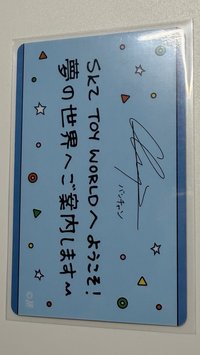 SKZ TOY WORLDへようこそ!
夢の世界へご案内します〜
バンチャン